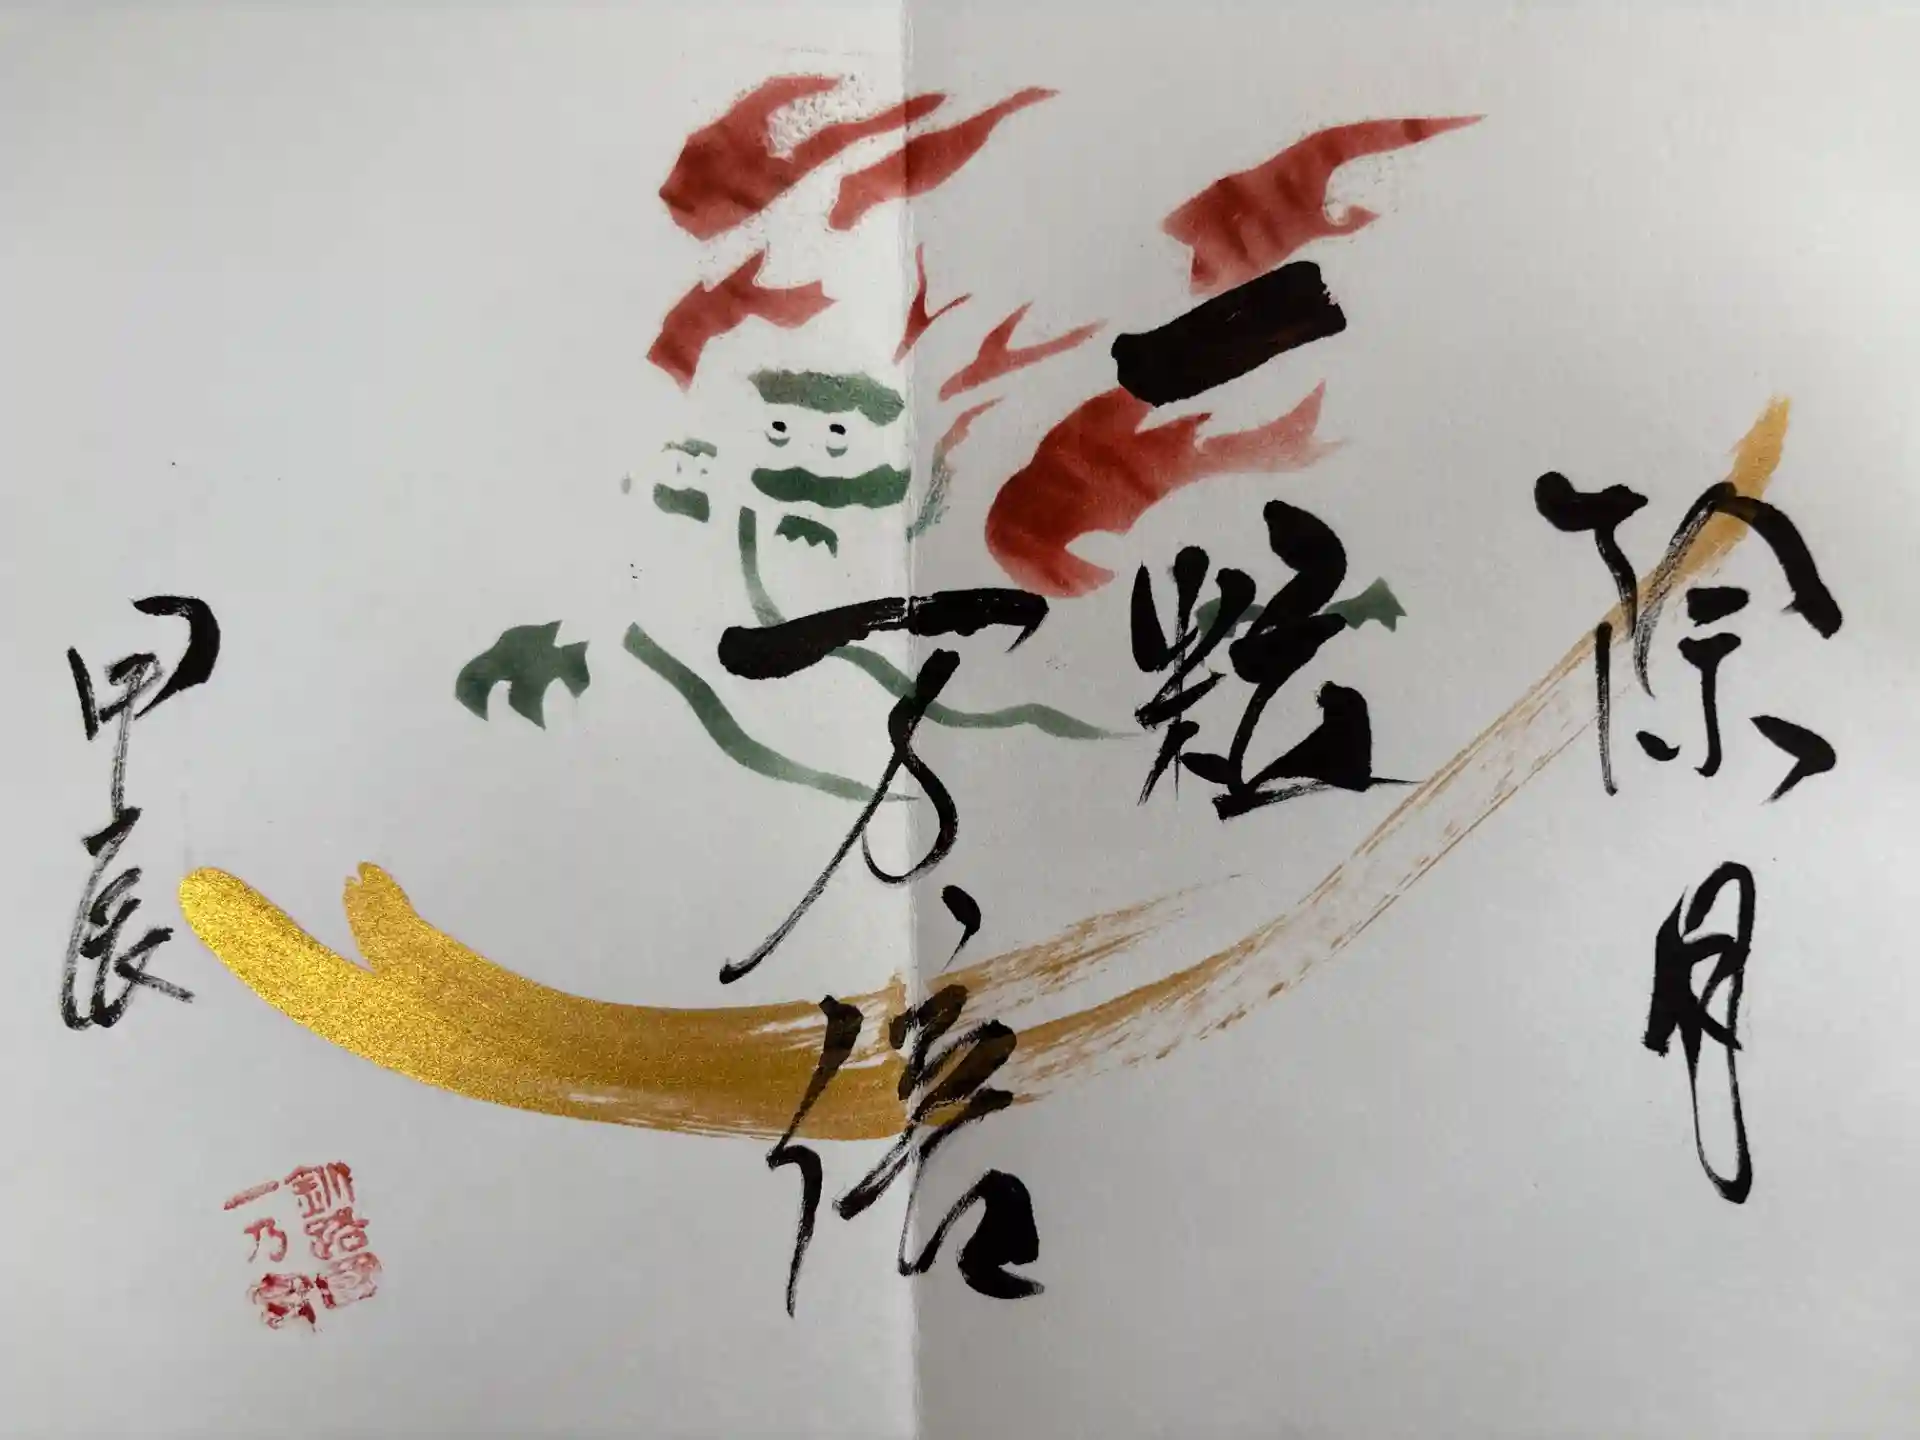 除月
一粒
万倍
甲辰
釧路國
一乃